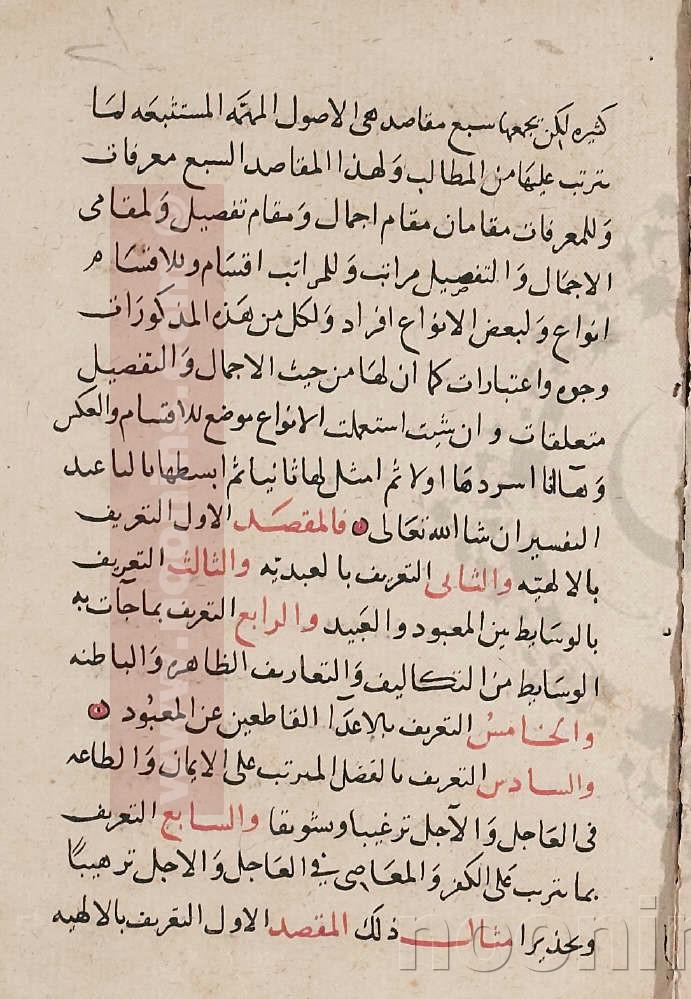 كثيره لكن يجمعها سبع مقاصد هى الاصول المهمه المستتبعه لما
يترتب عليها من المطالب ولهذا المقاصد السبع معرفات
وللمعرفات مقامان مقام اجمال ومقام تفصيل ولمقامى
الاجمال والتفصيل مراتب وللمراتب اقسام وللاقسام
انواع ولبعض الانواع افراد ولكل من هذه المذكورات
وجوه واعتبارات كما ان لها من حيث الاجمال والتفصيل
متعلقات وان شئت استعملت الانواع موضع للاقسام والعكس
وهاانا اسردها اولا ثم امثل لها ثانيا ثم ابسطها بالباعيد
التفسير ان شا الله تعالى فالمقصد الاول التعريف
بالالهيه والثانى التعريف بالعبديه والثالث التعريف
بالوسايط بين المعبود والعبيد والرابع التعريف بما جآت به
الوسايط من التكاليف والتعاريف الظاهره والباطنه
والخامس التعريف بالاعدآ القاطعين عن المعبود
والسادس التعريف بالفضل المترتب على الايمان والطاعه
فى العاجل والآجل ترغيبا وتشويقا والسابع التعريف
بما يترتب على الكفر والمعاصى فى العاجل والاجل ترهيبا
وتحذيرا مثال ذلك المقصد الاول التعريف بالالهيه